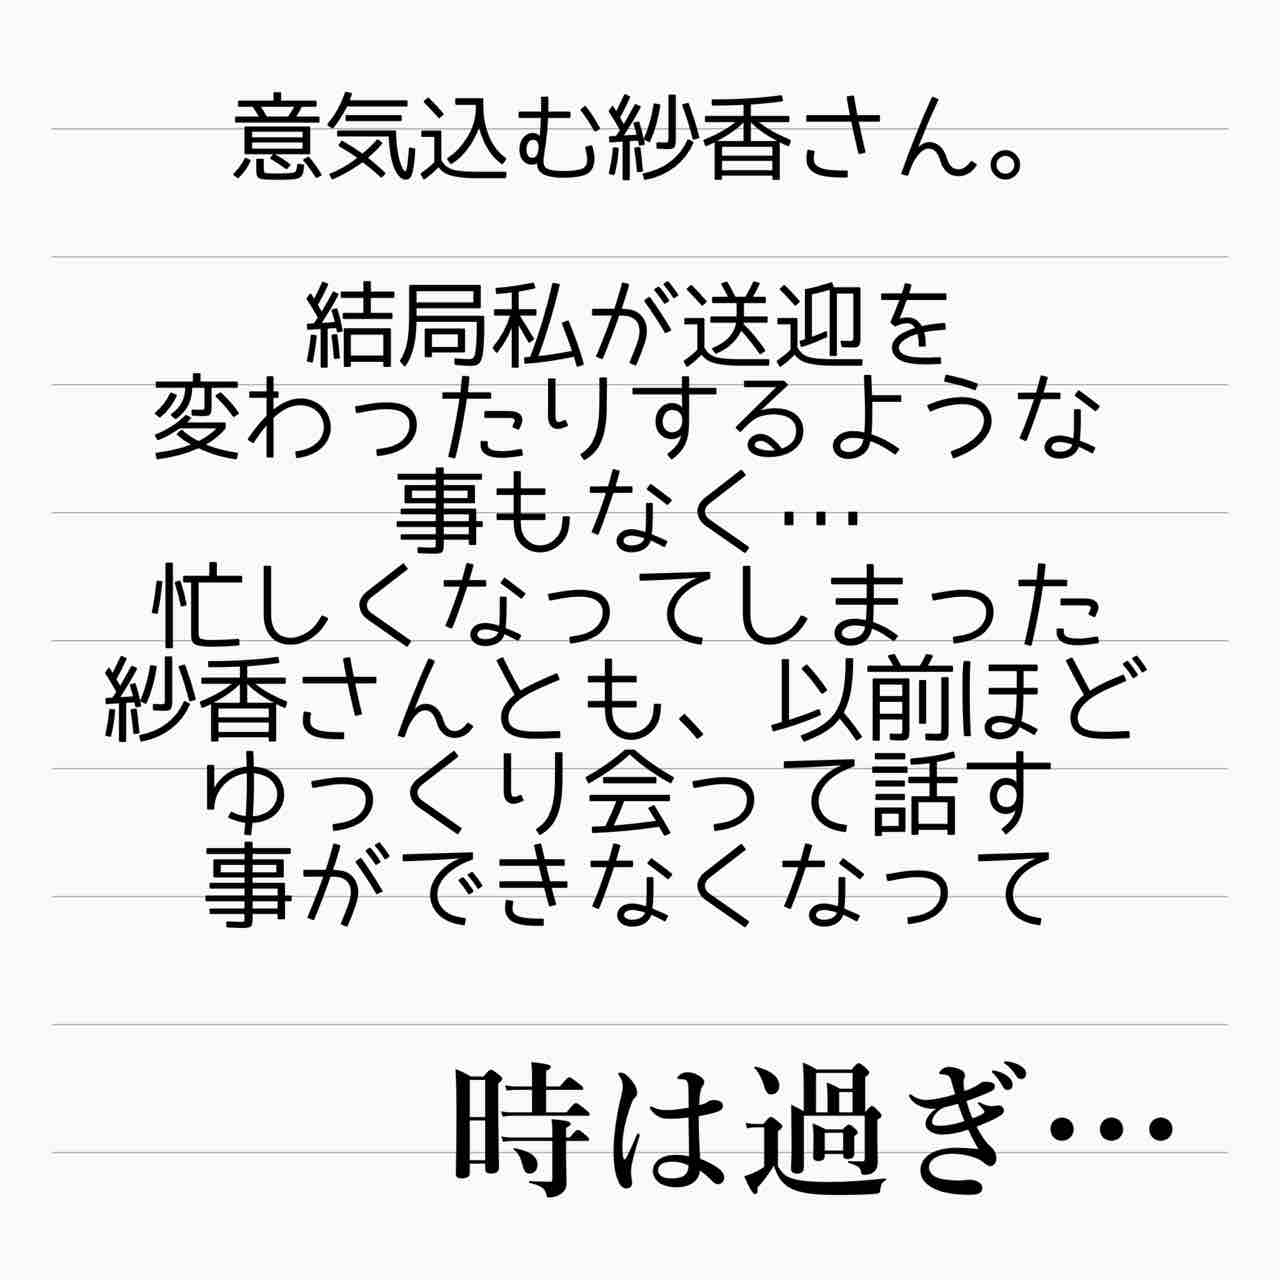 意気込む紗香さん。
結局私が送迎を
変わったりするような
事もなく…
忙しくなってしまった
紗香さんとも、以前ほど
ゆっくり会って話す
事ができなくなって
時は過ぎ…